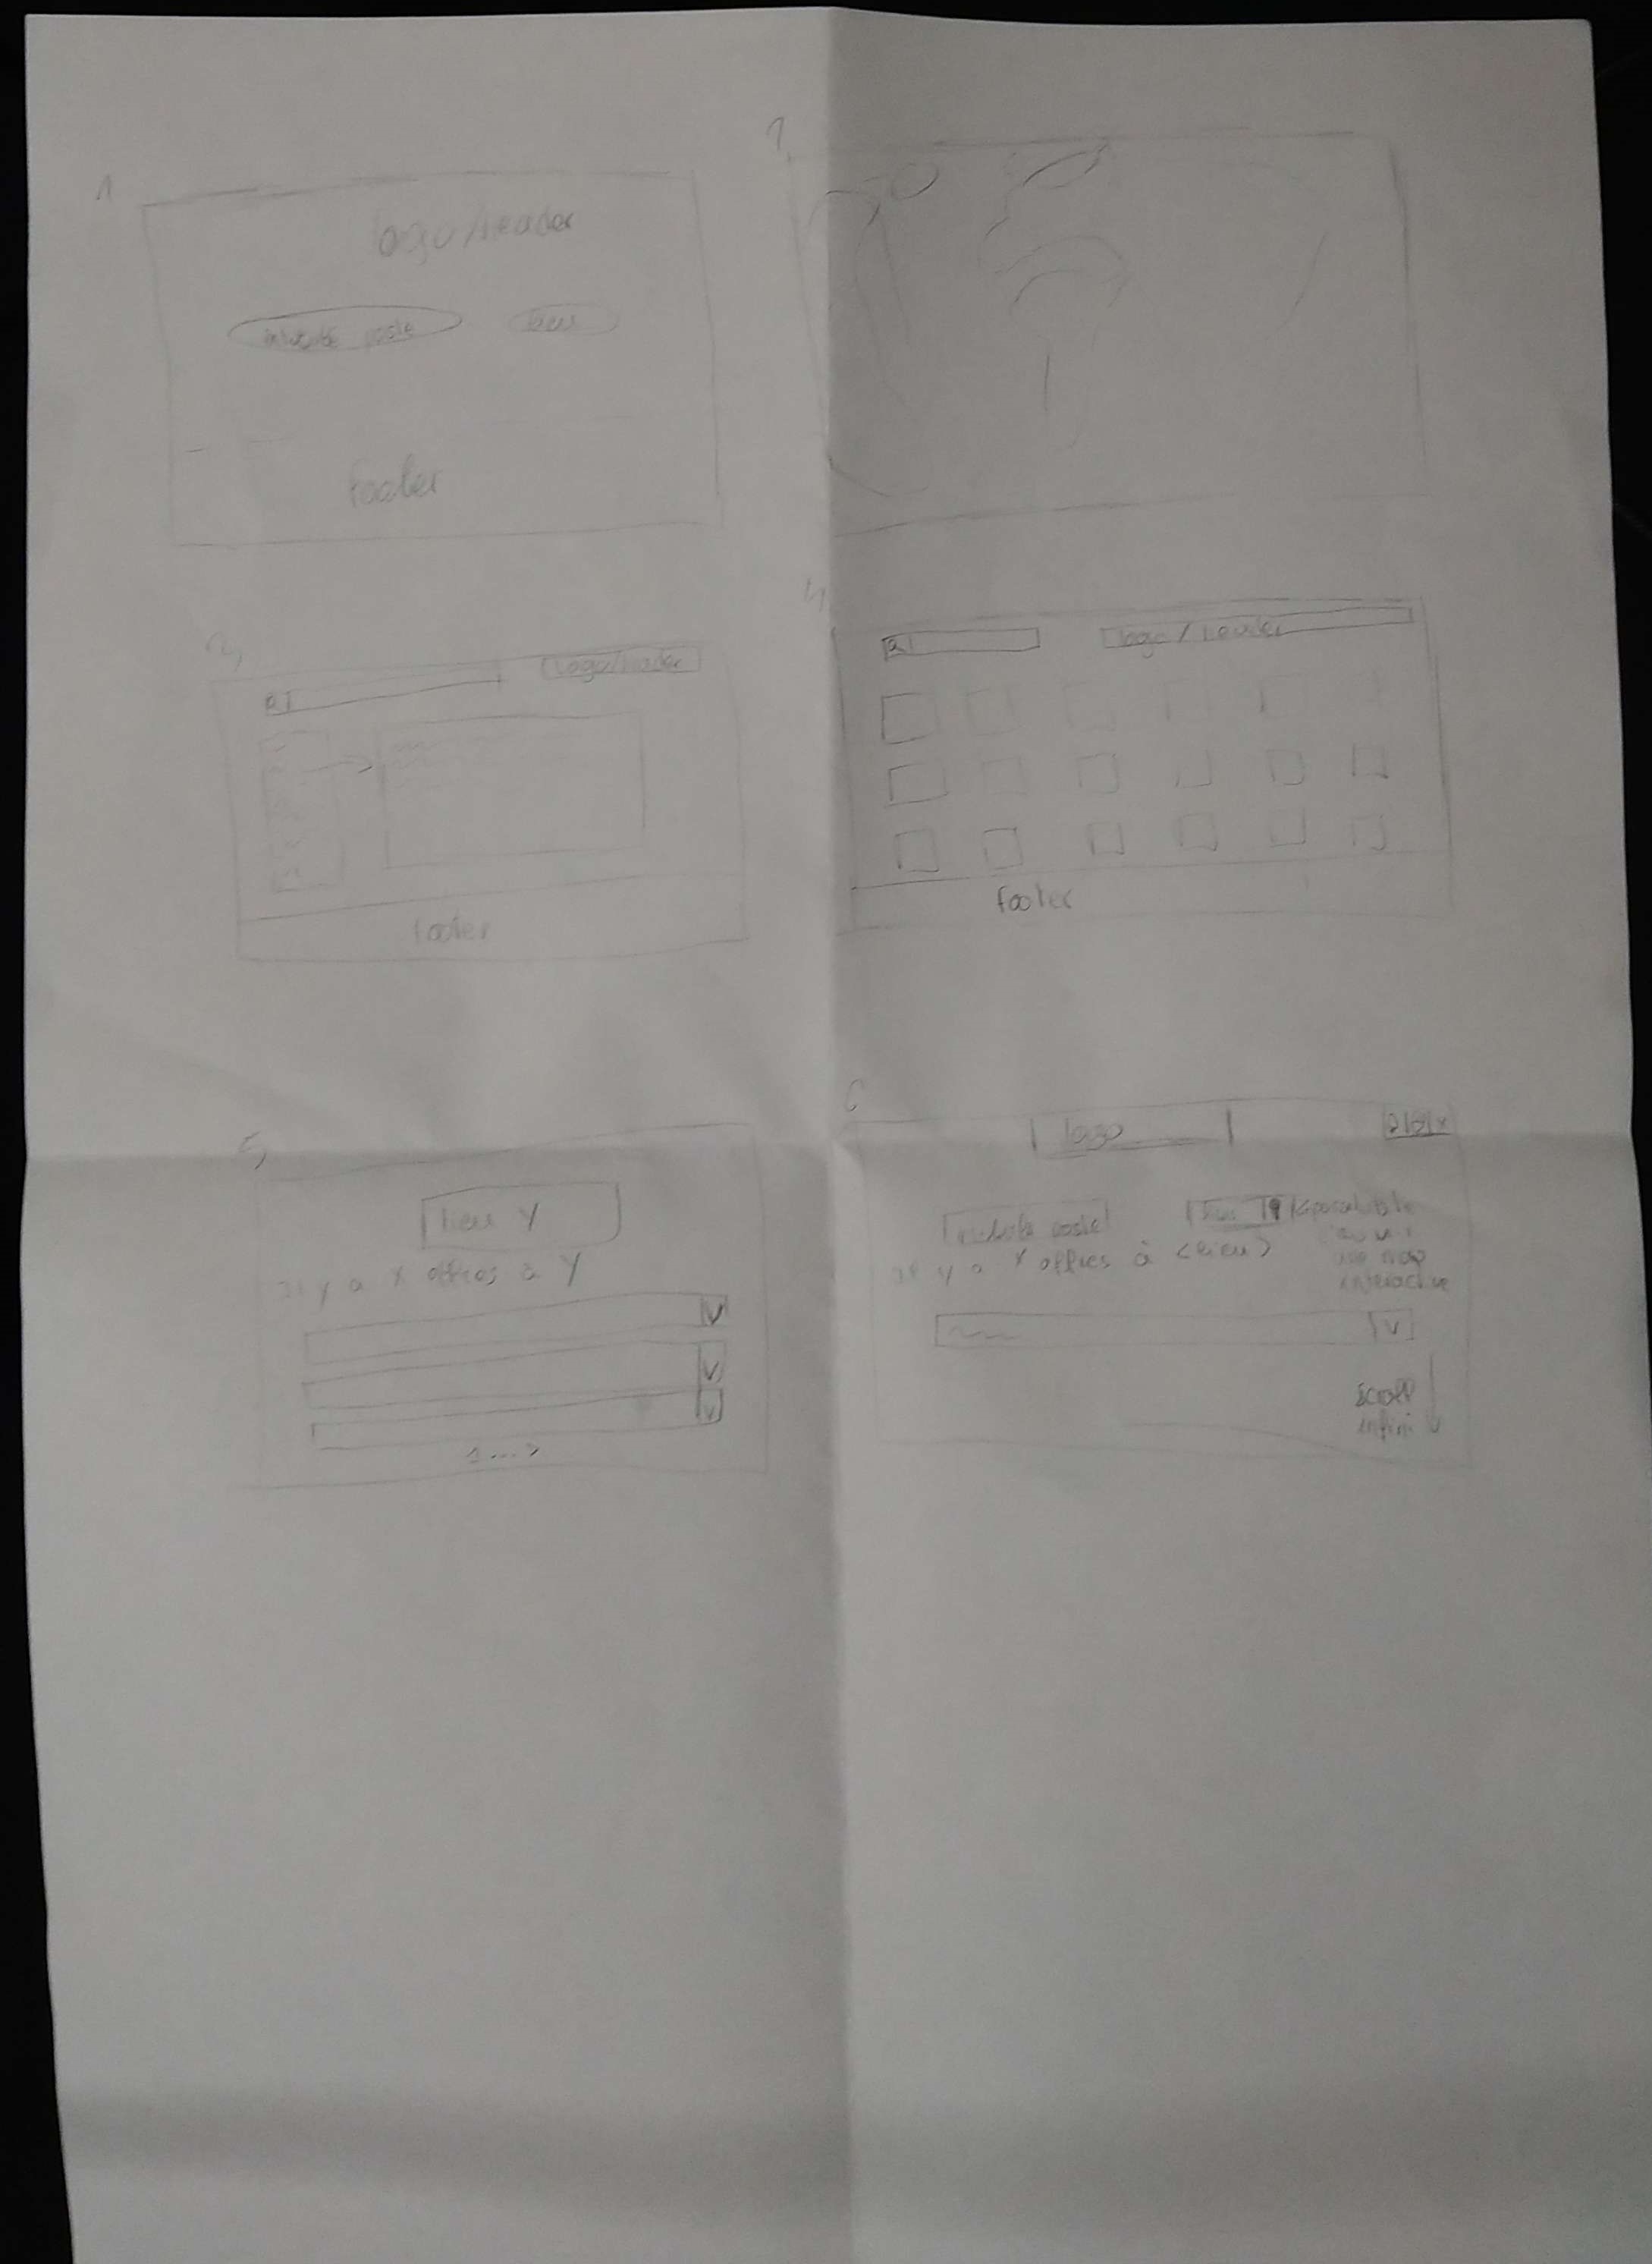 1
logo/header
intitulé poste lieu
footer
2,
3,
logo/header
footer
4,
logo / header
footer
5,
lieu Y
Il y a x offres à Y
V
V
V
1...>
6
logo
intitulé poste
lieu
Il y a x offres à <lieu>
une map
interactive
V
scroll
infini